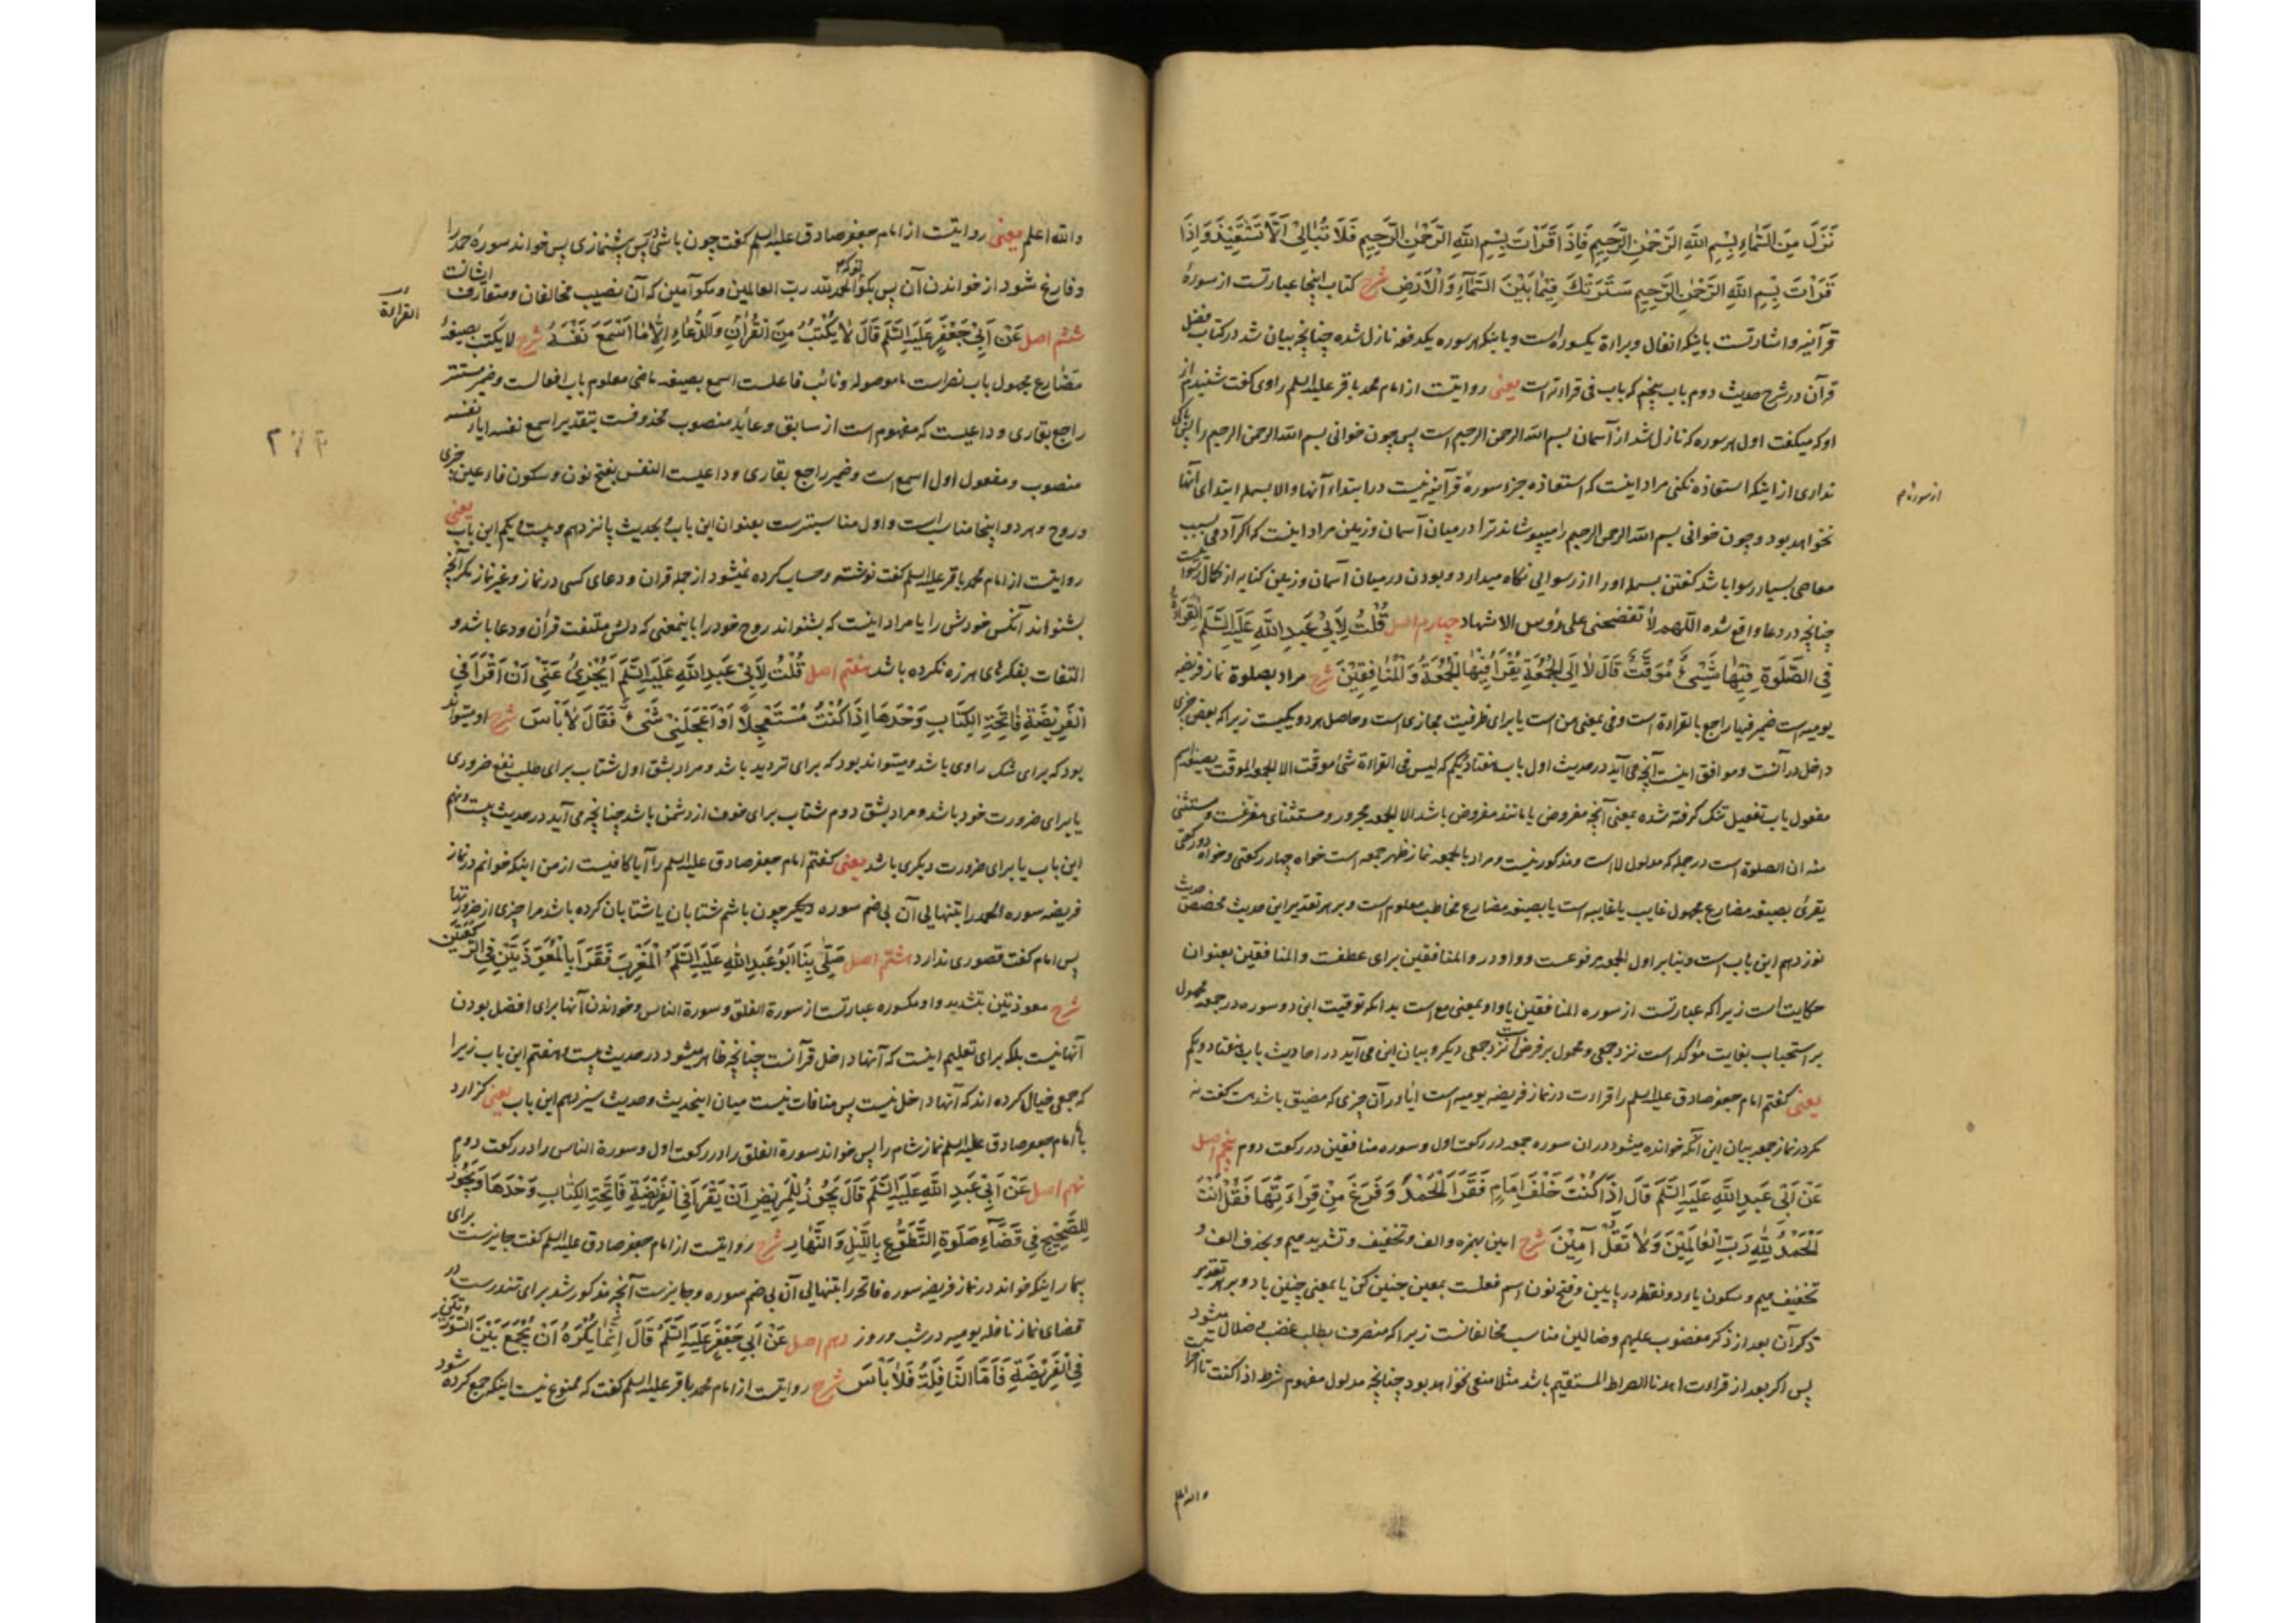 نَزَلَ مِنَ السَّمَاءِ بِسْمِ اللَّهِ الرَّحْمٰنِ الرَّحِيمِ فَاِذَا قَرَأْتَ بِسْمِ اللَّهِ الرَّحْمٰنِ الرَّحِيمِ فَلَا تُبَالِيْ اَلَّا تَسْتَعِيْذَ وَاِذَا
قَرَأْتَ بِسْمِ اللَّهِ الرَّحْمٰنِ الرَّحِيمِ سَتَرَتْكَ فِيْمَا بَيْنَ السَّمَآءِ وَالْاَرْضِ شرح کتاب اینجا عبارتست از سورهٔ
قرآنیه و اشارتست باینکه انفال و براءة یکسوره است و باینکه هر سوره یکدفعه نازل شده چنانچه بیان شد در کتاب فضل
قرآن در شرح حدیث دوم باب پنجم که باب فی قراءته است یعنی روایتست از امام محمد باقر علیه السلم راوی گفت شنیدم از
او که میگفت اول هر سوره که نازل شد از آسمان بسم الله الرحمن الرحیم است پس چون خوانی بسم الله الرحمن الرحیم را پس باکی
نداری از اینکه استعاذه نکنی مراد اینست که استعاذه جزء سورهٔ قرآنیه نیست در ابتداء آنها و الا بسمله ابتدای آنها
از سوره‌ام
نخواهد بود و چون خوانی بسم الله الرحمن الرحیم را میپوشاند ترا در میان آسمان و زمین مراد اینست که اگر آدمی بسبب
معاصی بسیار رسوا باشد گفتن بسمله او را از رسوایی نگاه میدارد و بودن در میان آسمان و زمین کنایه از کمال رسوا
چنانچه در دعا واقع شده اللّٰهم لا تفضحنی علی رؤس الاشهاد چهارم اصل قُلْتُ لِاَبِيْ عَبْدِ اللَّهِ عَلَيْهِ السَّلَمُ الْقِرَاءَة
فِي الصَّلٰوةِ فِيْهَا شَيْءٌ مُوَقَّتٌ قَالَ لَا اِلَّا الْجُمُعَةِ يُقْرَأُ فِيْهَا الْجُمُعَةُ وَالْمُنَافِقِيْنَ شرح مراد بصلوة نماز فریضه
یومیه است ضمیر فیها راجع بالقراءة است و فی بمعنی من است یا برای ظرفیت مجازی است و حاصل هر دو یکیست زیرا که بعض چیزی
داخل در آنست و موافق اینست آنچه می آید در حدیث اول باب هفتاد یکم که لیس فی القراءة شئ موقت الا الجمعه الموقت بصیغه اسم
مفعول باب تفعیل تنگ گرفته شده بمعنی آنچه مفروض یا مانند مفروض باشد الا الجمعه مجرور و مستثنای مفرغست و مستثنی
منه ان الصلوة است در جمله که مدلول لا است و مذکور نیست و مراد بالجمعه نماز ظهر جمعه است خواه چهار رکعتی و خواه دو رکعتی
یقرئ بصیغه مضارع مجهول غایب یا غایبه است یا بصیغه مضارع مخاطب معلوم است و بر هر تقدیر این حدیث مخصص حدیث
نوزدهم این باب است و بنابر اول الجمعه مرفوعست و واو در و المنافقین برای عطفست و المنافقین بعنوان
حکایت است زیرا که عبارتست از سوره المنافقین یا واو بمعنی مع است بدانکه توقیت این دو سوره در جمعه محمول
بر استحباب بغایت مؤکد است نزد جمعی و محمول بر فرض است نزد جمعی دیگر و بیان این می آید در احادیث باب هفتاد و یکم
یعنی گفتم امام جعفر صادق علیه السلم را قراءت در نماز فریضه یومیه است ایا در آن چیزی که مضیق باشد هست گفت نه
مگر در نماز جمعه بیان این آنکه خوانده میشود در ان سوره جمعه در رکعت اول و سوره منافقین در رکعت دوم پنجم اصل
عَنْ اَبِيْ عَبْدِ اللَّهِ عَلَيْهِ السَّلَمُ قَالَ اِذَا كُنْتَ خَلْفَ اِمَامٍ فَقَرَأَ الْحَمْدَ وَفَرَغَ مِنْ قِرَاءَتِهَا فَقُلْ اَنْتَ
اَلْحَمْدُ لِلّٰهِ رَبِّ الْعَالَمِيْنَ وَلَا تَقُلْ آمِيْنَ شرح امین بهمزه و الف و تخفیف و تشدید میم و بحذف الف و
تخفیف میم و سکون یاء دو نقطه در پایین و فتح نون اسم فعلست بمعنی چنین کن یا بمعنی چنین باد و بر هر تقدیر
ذکر آن بعد از ذکر مغضوب علیهم و ضالین مناسب مخالفانست زیرا که منصرف بطلب غضب و ضلال میشود
پس اگر بعد از قراءت اهدنا الصراط المستقیم باشد مثلا منعی نخواهد بود چنانچه مدلول مفهوم شرط اذا کنت تا آخر است
والله اعلم
والله اعلم یعنی روایتست از امام جعفر صادق علیه السلم گفت چون باشی در پس پیشنمازی پس خواند سورهٔ حمد را
و فارغ شود از خواندن آن پس بگو تو که الحمد لله رب العالمین و مگو آمین که آن نصیب مخالفان و متعارف ایشانست
القراءة
ششم اصل عَنْ اَبِيْ جَعْفَرٍ عَلَيْهِ السَّلَمُ قَالَ لَا يُكْتَبُ مِنَ الْقُرْاٰنِ وَالدُّعَاءِ اِلَّا مَا اَسْمَعَ نَفْسَهُ شرح لا یکتب بصیغهٔ
مضارع مجهول باب نصر است ما موصوله و نائب فاعلست اسمع بصیغه ماضی معلوم باب افعالست و ضمیر مستتر
راجع بقاری و داعیست که مفهوم است از سابق و عاید منصوب محذوفست بتقدیر اسمع نفسه ایاه نفسه
منصوب و مفعول اول اسمع است و ضمیر راجع بقاری و داعیست النفس بفتح نون و سکون فاء عین چیزی
و روح و هر دو اینجا مناسب است و اول مناسبترست بعنوان این باب و بحدیث پانزدهم و بیست و یکم این باب یعنی
روایتست از امام محمد باقر علیه السلم گفت نوشته و حساب کرده نمیشود از جمله قران و دعای کسی در نماز و غیر نماز مگر آنچه
بشنواند آنکس خودش را یا مراد اینست که بشنواند روح خود را باینمعنی که دلش ملتفت قرآن و دعا باشد و
التفات بفکرهای هرزه نکرده باشد هفتم اصل قُلْتُ لِاَبِيْ عَبْدِ اللَّهِ عَلَيْهِ السَّلَمُ اَيُجْزِئُ عَنِّيْ اَنْ اَقْرَأَ فِي
الْفَرِيْضَةِ فَاتِحَةَ الْكِتَابِ وَحْدَهَا اِذَا كُنْتُ مُسْتَعْجِلًا اَوْ اَعْجَلَنِيْ شَيْءٌ فَقَالَ لَا بَأْسَ شرح او میتواند
بود که برای شک راوی باشد و میتواند بود که برای تردید باشد و مراد بشق اول شتاب برای طلب نفع ضروری
یا برای ضرورت خود باشد و مراد بشق دوم شتاب برای خوف از دشمن باشد چنانچه می آید در حدیث بیست و نهم
این باب یا برای ضرورت دیگری باشد یعنی گفتم امام جعفر صادق علیه السلم را آیا کافیست از من اینکه خوانم در نماز
فریضه سوره الحمد را بتنهایی آن بی ضم سوره دیگر چون باشم شتابان یا شتابان کرده باشد مرا چیزی از ضرورتها
پس امام گفت قصوری ندارد هشتم اصل صَلّٰى بِنَا اَبُوْ عَبْدِ اللّٰهِ عَلَيْهِ السَّلَمُ الْمَغْرِبَ فَقَرَأَ بِالْمُعَوِّذَتَيْنِ فِي الرَّكْعَتَيْنِ
شرح معوذتین بتشدید واو مکسوره عبارتست از سورة الفلق و سورة الناس و خواندن آنها برای افضل بودن
آنها نیست بلکه برای تعلیم اینست که آنها داخل قرآنست چنانچه ظاهر میشود در حدیث بیست و هفتم این باب زیرا
که جمعی خیال کرده اند که آنها داخل نیست پس منافات نیست میان اینحدیث و حدیث سیزدهم این باب یعنی گزارد
با امام جعفر صادق علیه السلم نماز شام را پس خواند سورة الفلق را در رکعت اول و سورة الناس را در رکعت دوم
نهم اصل عَنْ اَبِيْ عَبْدِ اللَّهِ عَلَيْهِ السَّلَمُ قَالَ يَجُوْزُ لِلْمَرِيْضِ اَنْ يَقْرَأَ فِي الْفَرِيْضَةِ فَاتِحَةَ الْكِتَابِ وَحْدَهَا وَيَجُوْزُ
لِلصَّحِيْحِ فِي قَضَآءِ صَلٰوةِ التَّطَوُّعِ بِاللَّيْلِ وَالنَّهَارِ شرح روایتست از امام جعفر صادق علیه السلم گفت جایزست برای
بیمار اینکه خواند در نماز فریضه سوره فاتحه را بتنهایی آن بی ضم سوره و جایزست آنچه مذکور شد برای تندرست در
قضای نماز نافله یومیه در شب و روز دهم اصل عَنْ اَبِيْ جَعْفَرٍ عَلَيْهِ السَّلَمُ قَالَ اِنَّمَا يُكْرَهُ اَنْ يُجْمَعَ بَيْنَ السُّوْرَتَيْنِ
فِي الْفَرِيْضَةِ فَاَمَّا النَّافِلَةُ فَلَا بَأْسَ شرح روایتست از امام محمد باقر علیه السلم گفت که ممنوع نیست اینکه جمع کرده شود